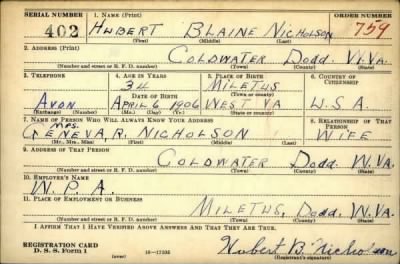 SERIAL NUMBER 1. NAME (Print) ORDER NUMBER
402 HUBERT BLAINE NICHOLSON 759
(First) (Middle) (Last)
2. ADDRESS (Print)
COLDWATER Dodd. W.VA.
(Number and street or R. F. D. number) (Town) (County) (State)
3. TELEPHONE 4. AGE IN YEARS 5. PLACE OF BIRTH 6. COUNTRY OF CITIZENSHIP
34 MILETUS
DATE OF BIRTH (Town or county)
AVON APRIL 6 1906 WEST VA U.S.A.
(Exchange) (Number) (Mo.) (Day) (Yr.) (State or country)
7. NAME OF PERSON WHO WILL ALWAYS KNOW YOUR ADDRESS 8. RELATIONSHIP OF THAT PERSON
MRS. GENEVA, R. NICHOLSON WIFE
(Mr., Mrs., Miss) (First) (Middle) (Last)
9. ADDRESS OF THAT PERSON
COLDWATER Dodd. W.VA.
(Number and street or R. F. D. number) (Town) (County) (State)
10. EMPLOYER'S NAME
W.P.A.
11. PLACE OF EMPLOYMENT OR BUSINESS
MILETUS, Dodd. W.VA.
(Number and street or R. F. D. number) (Town) (County) (State)
I AFFIRM THAT I HAVE VERIFIED ABOVE ANSWERS AND THAT THEY ARE TRUE.
REGISTRATION CARD
D. S. S. Form 1 (over) 16—17105 Hubert B. Nicholson
(Registrant's signature)